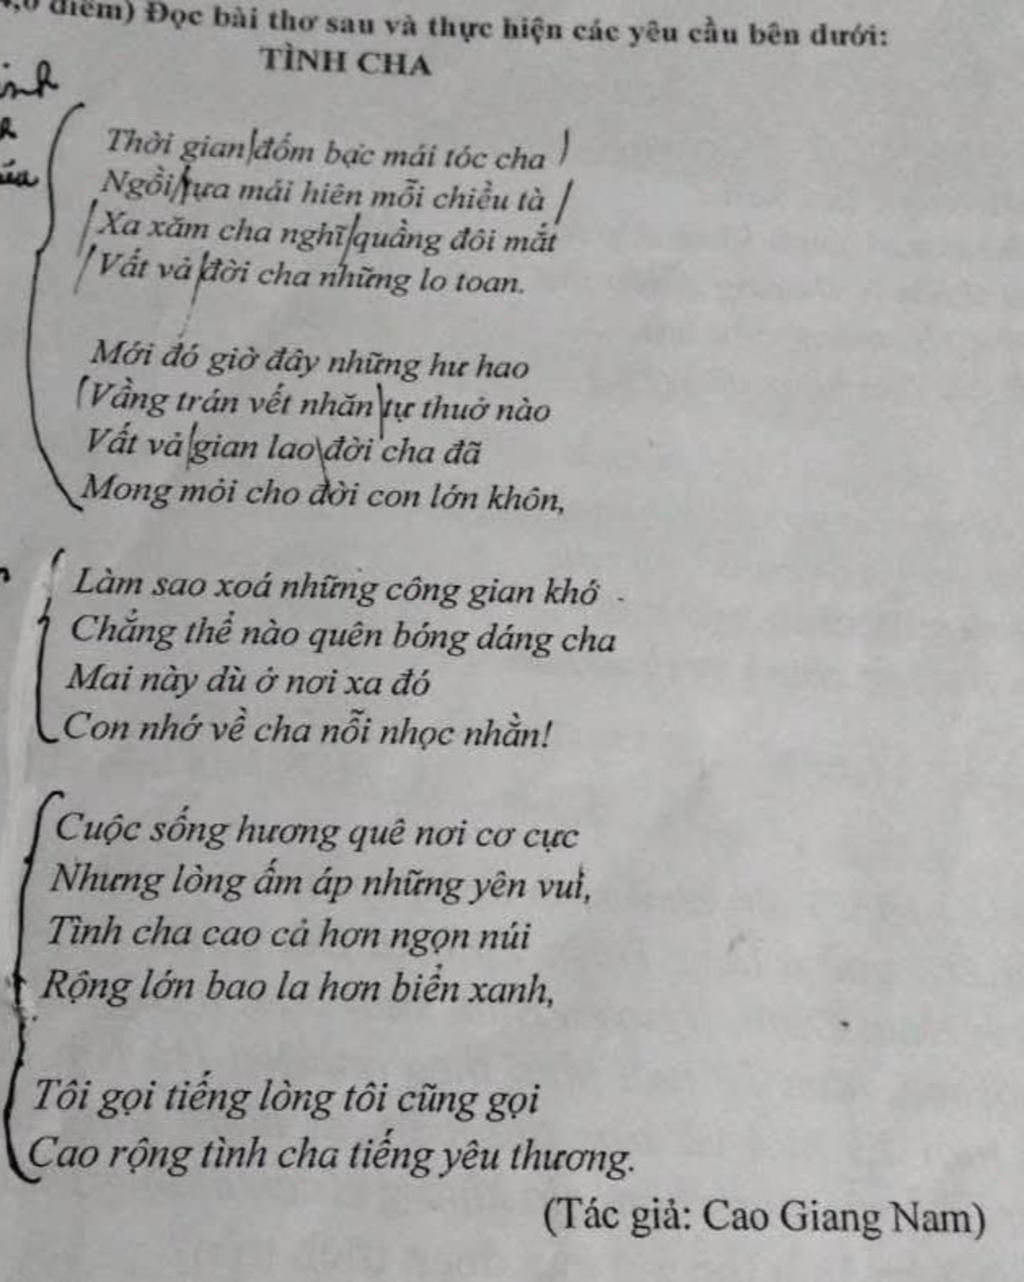 điểm) Đọc bài thơ sau và thực hiện các yêu cầu bên dưới:
TÌNH CHA
Thời gian đốm bạc mái tóc cha
Ngồi tựa mái hiên mỗi chiều tà
Xa xăm cha nghĩ quầng đôi mắt
Vất vả đời cha những lo toan.
Mới đó giờ đây những hư hao
Vầng trán vết nhăn tự thuở nào
Vất vả gian lao đời cha đã
Mong mỏi cho đời con lớn khôn,
Làm sao xoá những công gian khó
Chẳng thể nào quên bóng dáng cha
Mai này dù ở nơi xa đó
Con nhớ về cha nỗi nhọc nhằn!
Cuộc sống hương quê nơi cơ cực
Nhưng lòng ấm áp những yên vui,
Tình cha cao cả hơn ngọn núi
Rộng lớn bao la hơn biển xanh,
Tôi gọi tiếng lòng tôi cũng gọi
Cao rộng tình cha tiếng yêu thương.
(Tác giả: Cao Giang Nam)